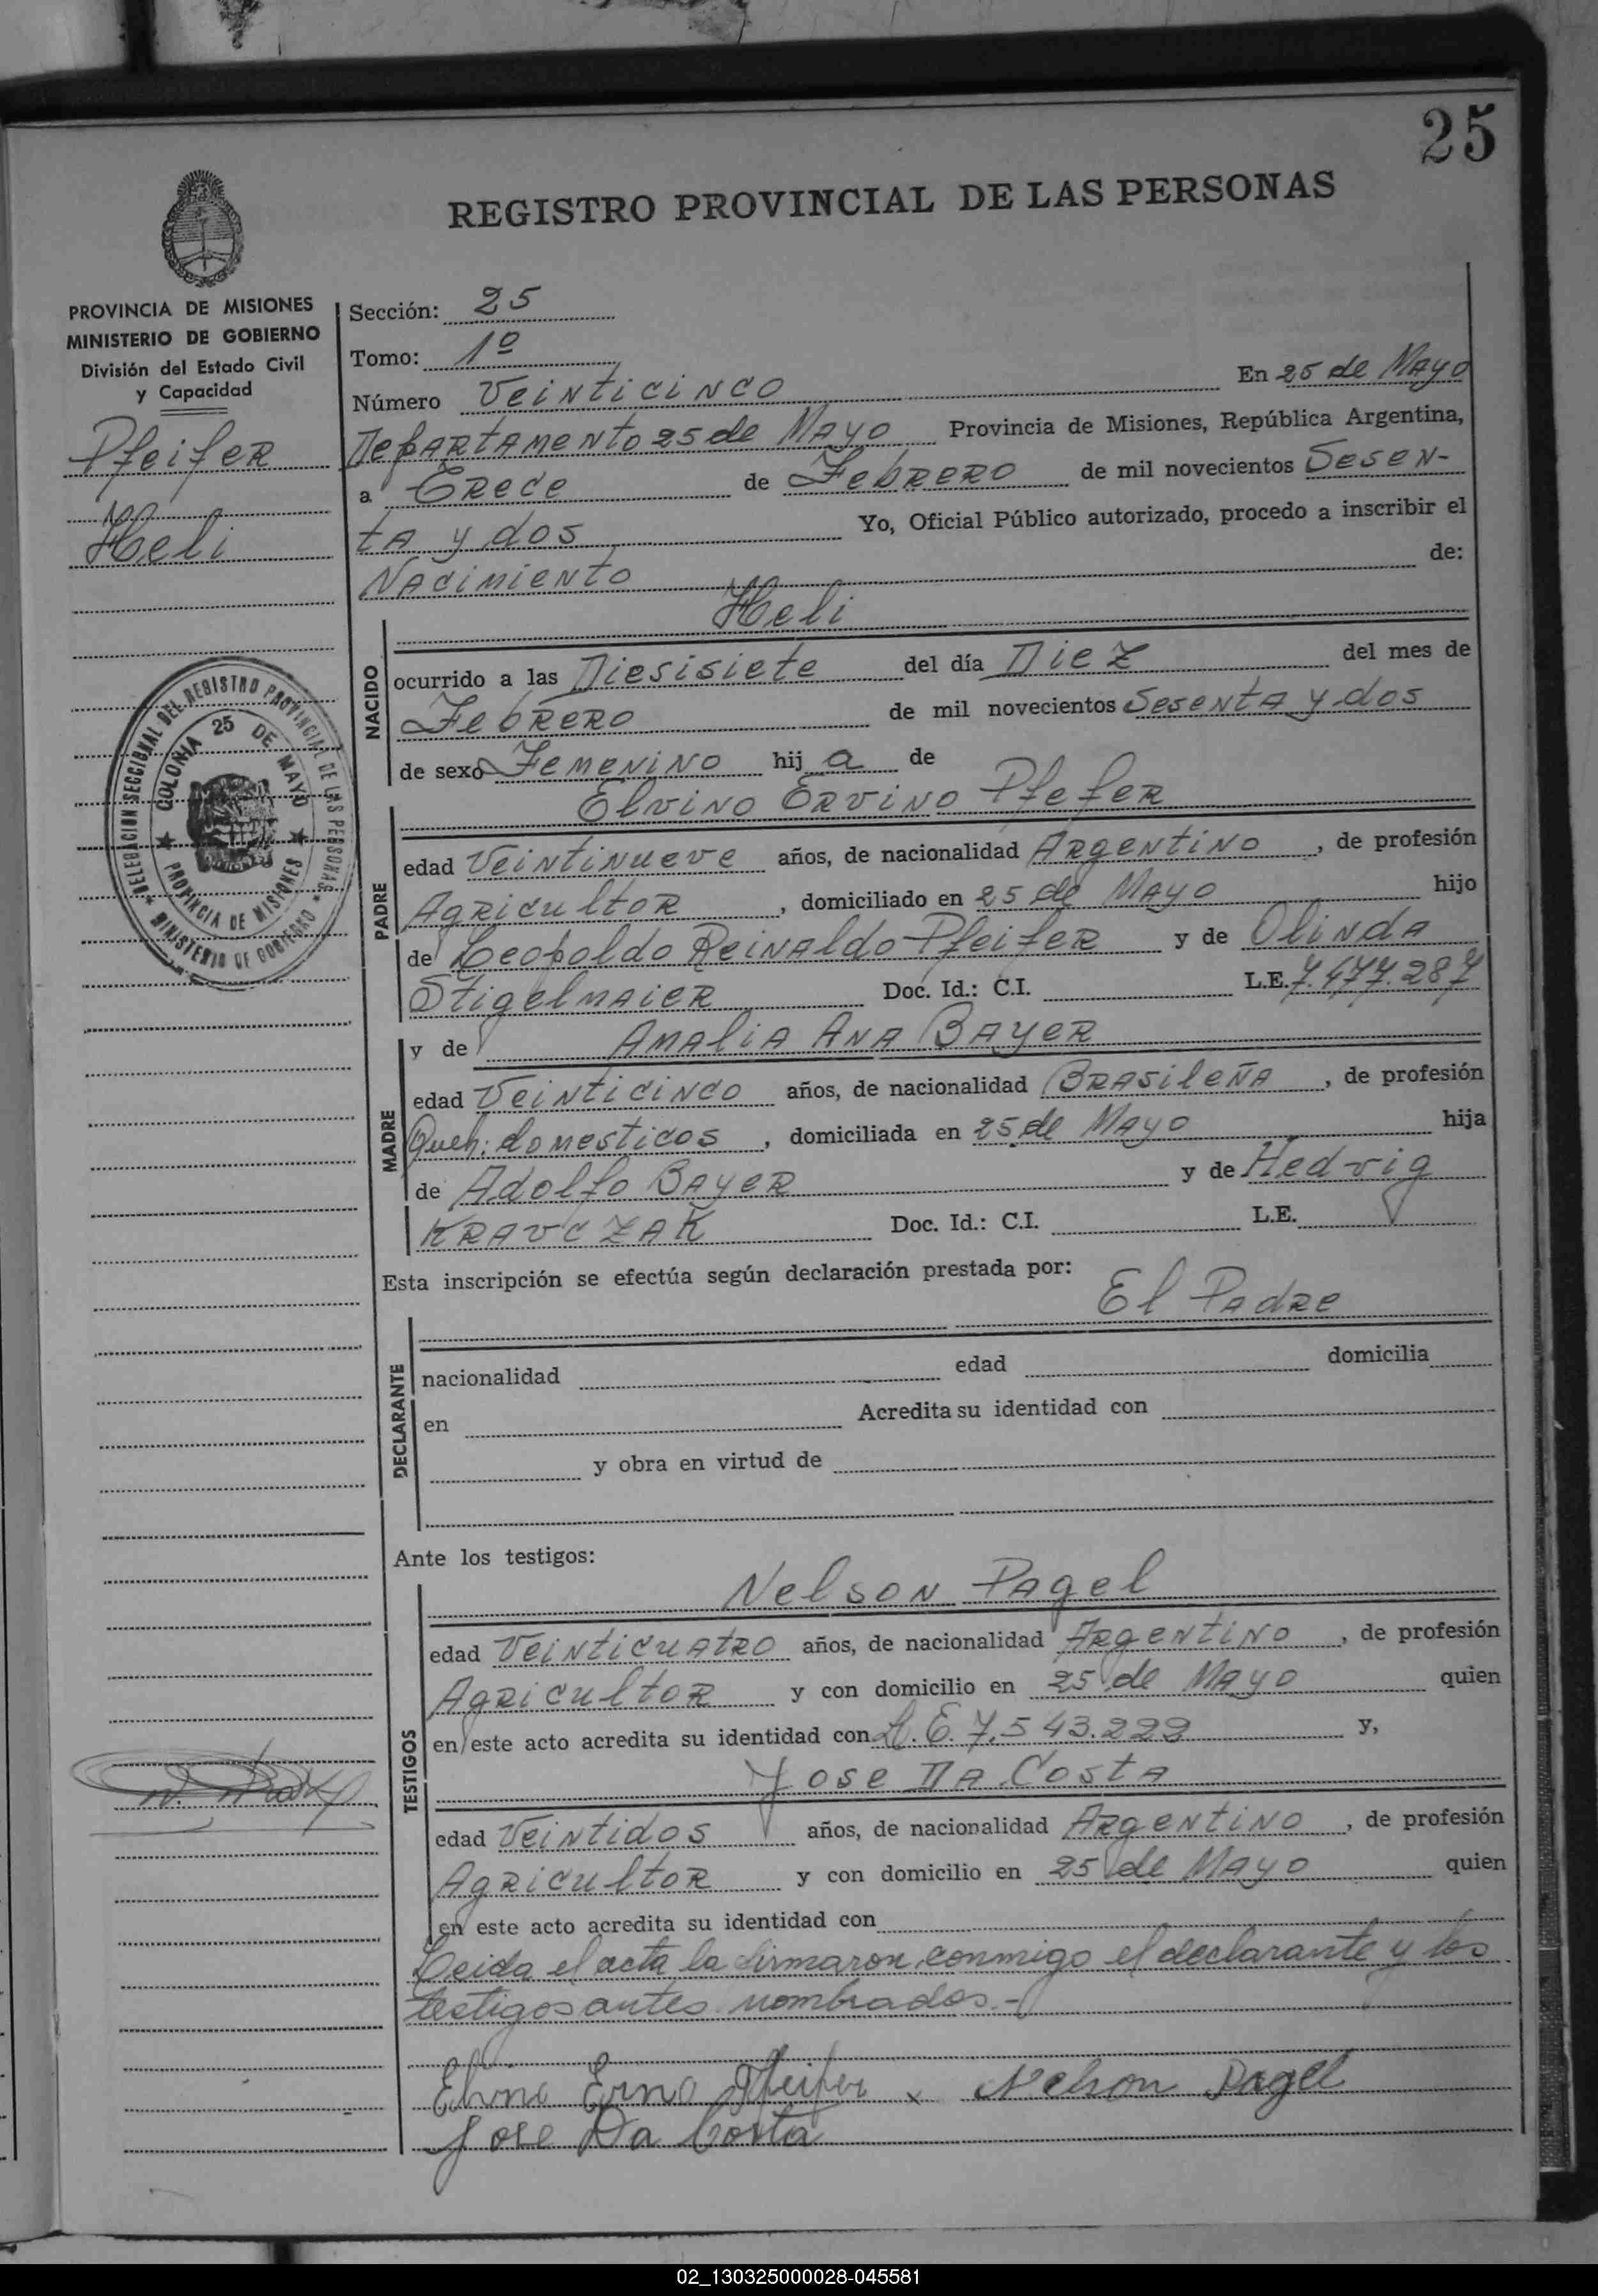 25
REGISTRO PROVINCIAL DE LAS PERSONAS
PROVINCIA DE MISIONES
MINISTERIO DE GOBIERNO
División del Estado Civil
y Capacidad
Pfeifer
Heli
DELEGACION SECCIONAL DEL REGISTRO PROVINCIAL DE LAS PERSONAS
MINISTERIO DE GOBIERNO
COLONIA 25 DE MAYO
PROVINCIA DE MISIONES
Sección: 25
Tomo: 1º
Número Veinticinco En 25 de Mayo
Departamento 25 de Mayo Provincia de Misiones, República Argentina,
a Trece de Febrero de mil novecientos Sesen-
ta y dos Yo, Oficial Público autorizado, procedo a inscribir el
Nacimiento de:
NACIDO
Heli
ocurrido a las Diesisiete del día Diez del mes de
Febrero de mil novecientos Sesenta y dos
de sexo Femenino hij a de
PADRE
Elvino Ervino Pfefer
edad Veintinueve años, de nacionalidad Argentino, de profesión
Agricultor, domiciliado en 25 de Mayo hijo
de Leopoldo Reinaldo Pfeifer y de Olinda
Stigelmaier Doc. Id.: C.I. L.E. 7.477.287
MADRE
y de Amalia Ana Bayer
edad Veinticinco años, de nacionalidad Brasileña, de profesión
Queh: domesticos, domiciliada en 25 de Mayo hija
de Adolfo Bayer y de Hedvig
Kravczak Doc. Id.: C.I. L.E.
Esta inscripción se efectúa según declaración prestada por:
El Padre
DECLARANTE
nacionalidad edad domicilia
en Acredita su identidad con
y obra en virtud de
Ante los testigos:
TESTIGOS
Nelson Pagel
edad Veinticuatro años, de nacionalidad Argentino, de profesión
Agricultor y con domicilio en 25 de Mayo quien
en este acto acredita su identidad con L.E. 7.543.229 y,
Jose Da Costa
edad Veintidos años, de nacionalidad Argentino, de profesión
Agricultor y con domicilio en 25 de Mayo quien
en este acto acredita su identidad con
Leida el acta la firmaron conmigo el declarante y los
testigos antes nombrados.-
Elvino Erno Pfeifer x Nelson Pagel
Jose Da Costa
02_130325000028-045581